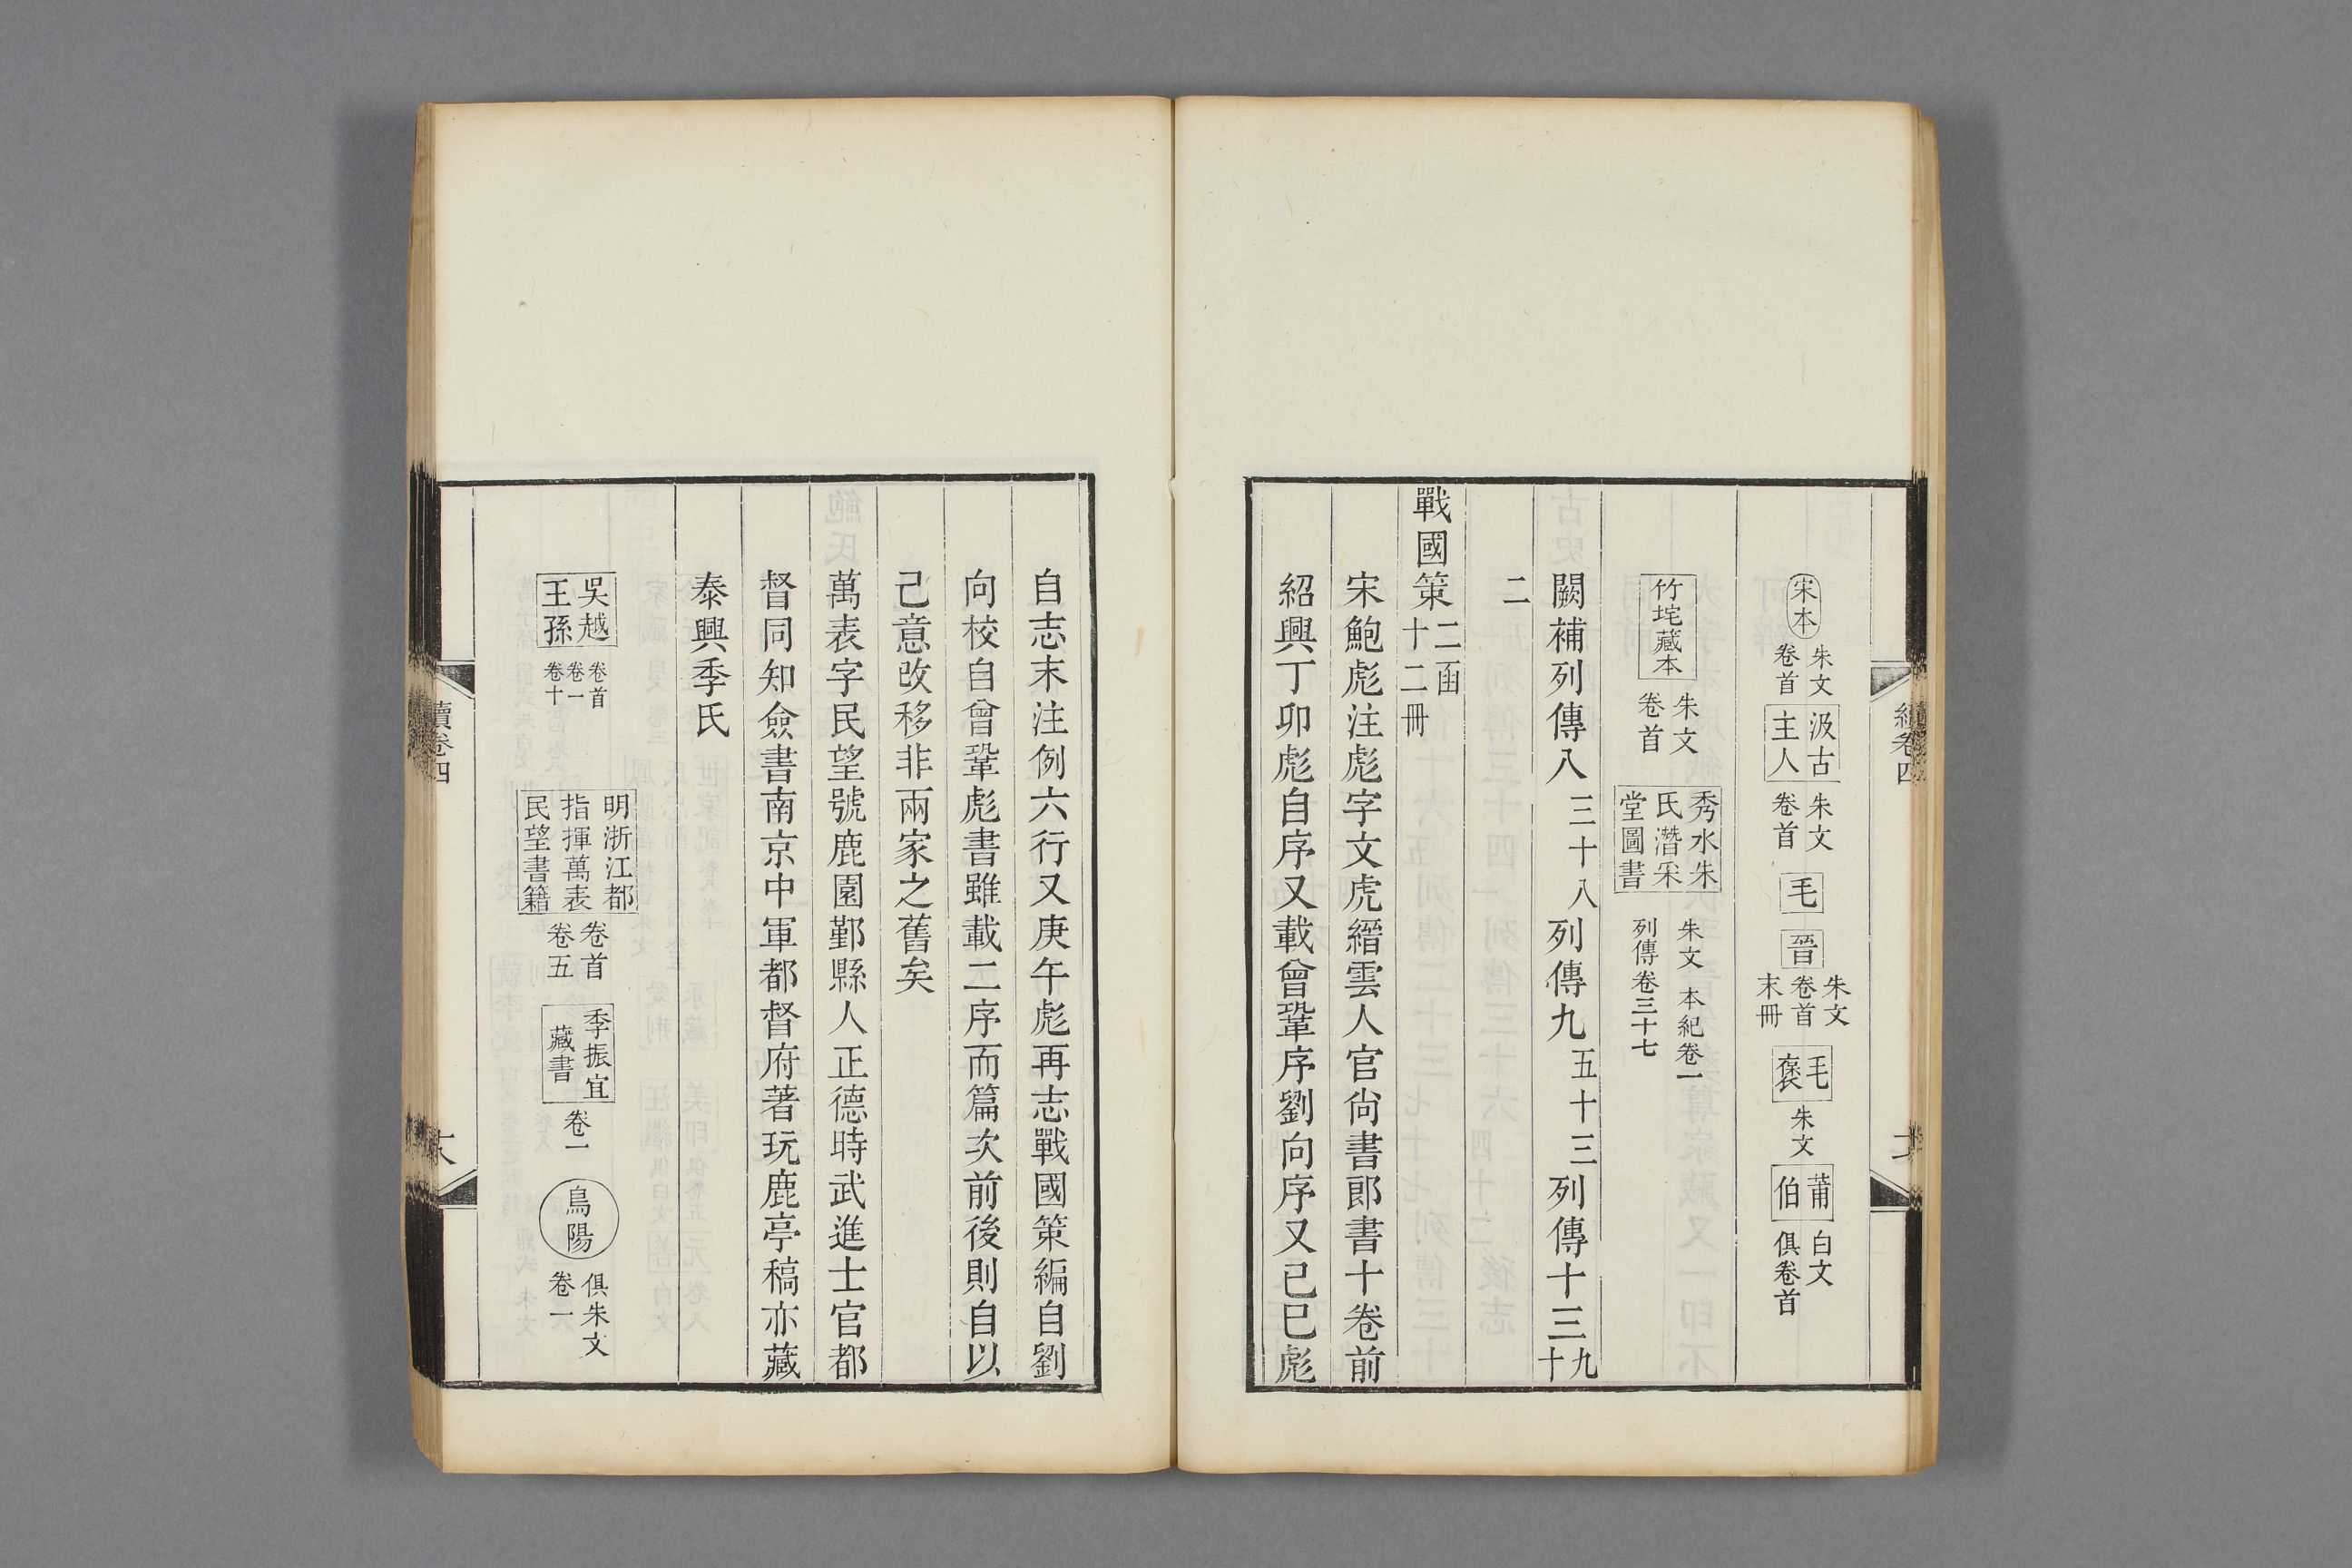 宋本 朱文卷首 汲古主人 朱文卷首 毛 晉 朱文卷首末冊 毛褒 朱文 莆伯 白文俱卷首
竹垞藏本 朱文卷首 秀水朱氏潛采堂圖書 朱文 本紀卷一 列傳卷三十七
闕補列傳八 三十八 列傳九 五十三 列傳十三 九十
二
戰國策 二函十二冊
宋鮑彪注彪字文虎縉雲人官尙書郎書十卷前
紹興丁卯彪自序又載曾鞏序劉向序又己巳彪
自志末注例六行又庚午彪再志戰國策編自劉
向校自曾鞏彪書雖載二序而篇次前後則自以
己意改移非兩家之舊矣
萬表字民望號鹿園鄞縣人正德時武進士官都
督同知僉書南京中軍都督府著玩鹿亭稿亦藏
泰興季氏
吳越王孫 卷首卷一卷十 明浙江都指揮萬表民望書籍 卷首卷五 季振宜藏書 卷一 鳥陽 俱朱文卷一
續卷四